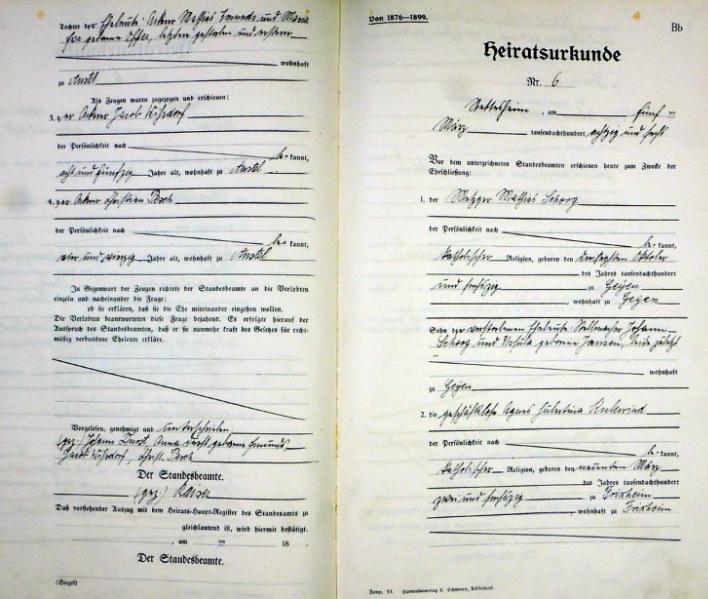 Tochter der Eheleute: Ackerer Mathias und Maria
Eva geborene letztere gestorben und erstere
wohnhaft
zu Anstel
Als Zeugen waren zugezogen und erschienen:
3. der Ackerer Jacob
der Persönlichkeit nach be- kannt,
acht und fünfzig Jahre alt, wohnhaft zu Anstel
4. der Ackerer Christian Esch
der Persönlichkeit nach be- kannt,
vier und vierzig Jahre alt, wohnhaft zu Anstel
In Gegenwart der Zeugen richtete der Standesbeamte an die Verlobten
einzeln und nacheinander die Frage:
ob sie erklären, daß sie die Ehe miteinander eingehen wollen.
Die Verlobten beantworteten diese Frage bejahend. Es erfolgte hierauf der
Ausspruch des Standesbeamten, daß er sie nunmehr kraft des Gesetzes für recht-
mäßig verbundene Eheleute erkläre.
Vorgelesen, genehmigt und unterschrieben
(gez.) Johann Anna geborene
Jacob Christ. Esch
Der Standesbeamte.
(gez.) Kaiser
Daß vorstehender Auszug mit dem Heirats-Haupt-Register des Standesamts zu
gleichlautend ist, wird hiermit bestätigt.
, am ten 18
Der Standesbeamte.
(Siegel)
Von 1876—1899.
Bb
Heiratsurkunde
Nr. 6
Nettesheim, am fünf ten
März tausendachthundert achtzig und sechs
Vor dem unterzeichneten Standesbeamten erschienen heute zum Zwecke der
Eheschließung:
1. der Metzger Mathias Schorg
der Persönlichkeit nach be- kannt,
katholischer Religion, geboren den dreißigsten Oktober
des Jahres tausendachthundert
und sechzig zu Geyen
, wohnhaft zu Geyen
Sohn der verstorbenen Eheleute: Stellmacher Johann
Schorg und Ursula geborene Jansen, beide zuletzt
wohnhaft
zu Geyen
2. die geschäftslose Agnes Hubertina
der Persönlichkeit nach be- kannt,
katholischer Religion, geboren den neunten März
des Jahres tausendachthundert
zwei und sechzig zu Frixheim
, wohnhaft zu Frixheim